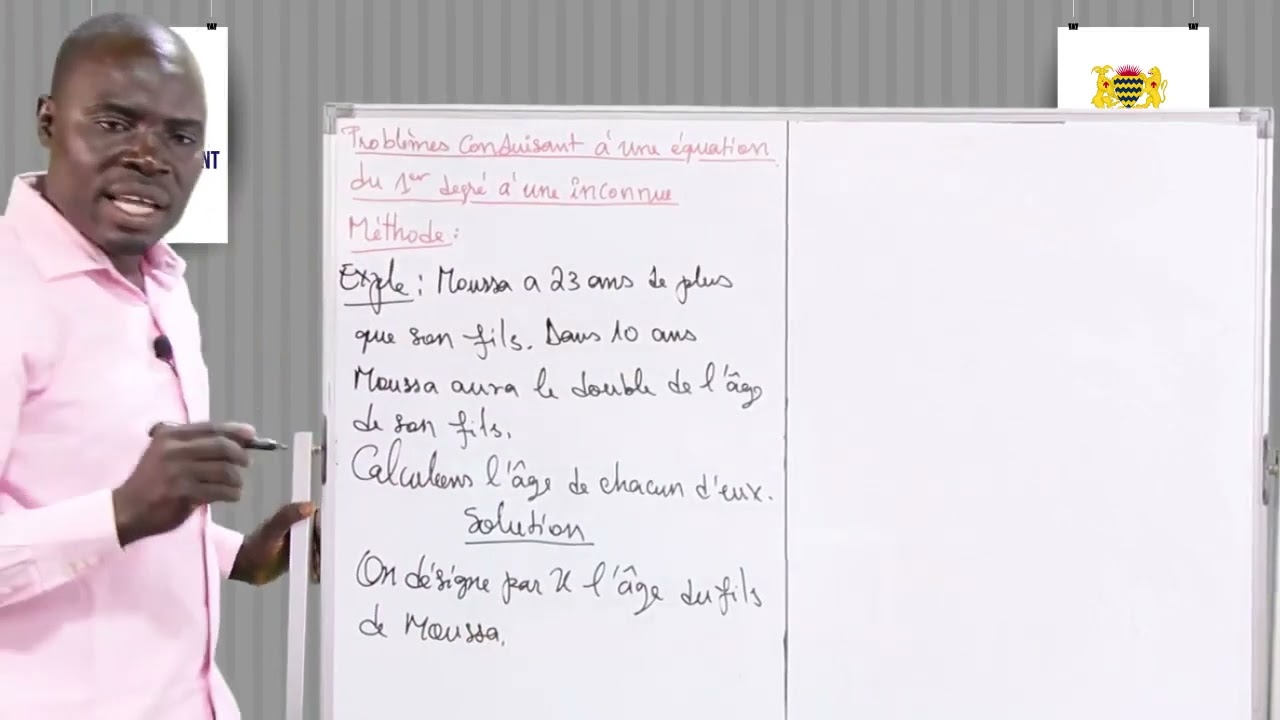 NT
Problèmes Conduisant à une équation
du 1er degré à une inconnue
Méthode :
Exple : Moussa a 23 ans de plus
que son fils. Dans 10 ans
Moussa aura le double de l'âge
de son fils.
Calculons l'âge de chacun d'eux.
Solution
On désigne par x l'âge du fils
de Moussa.